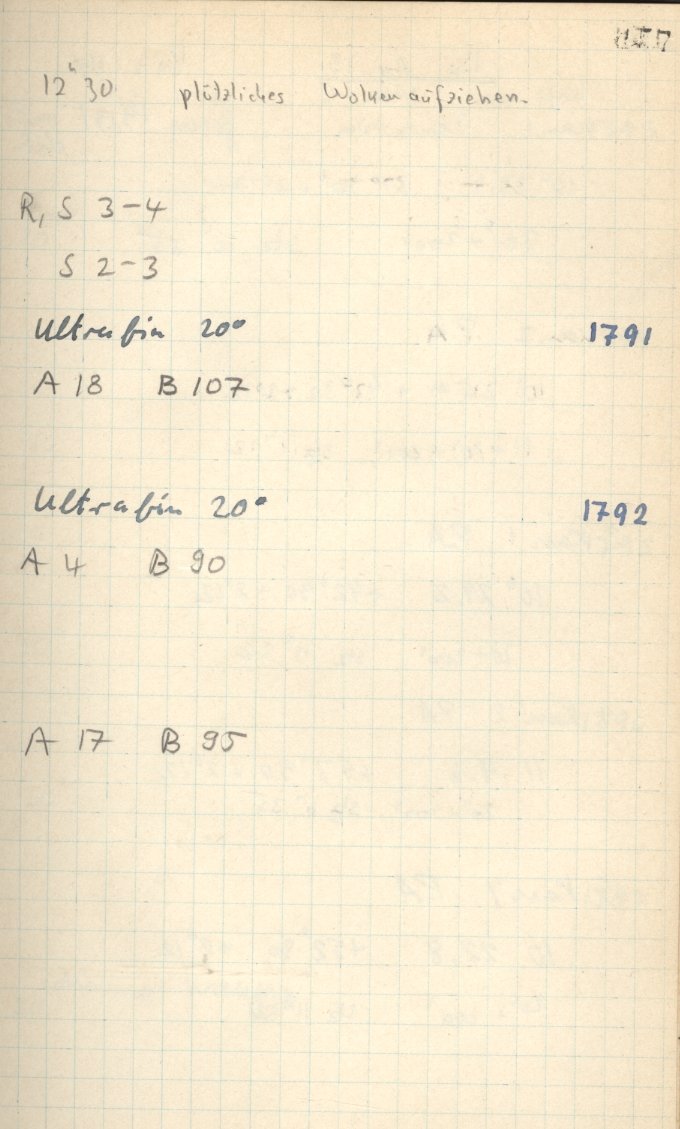 12ʰ 30 plötzliches Wolkenaufziehen.
R, S 3-4
S 2-3
Ultrafin 20° 1791
A 18 B 107
Ultrafin 20° 1792
A 4 B 90
A 17 B 95